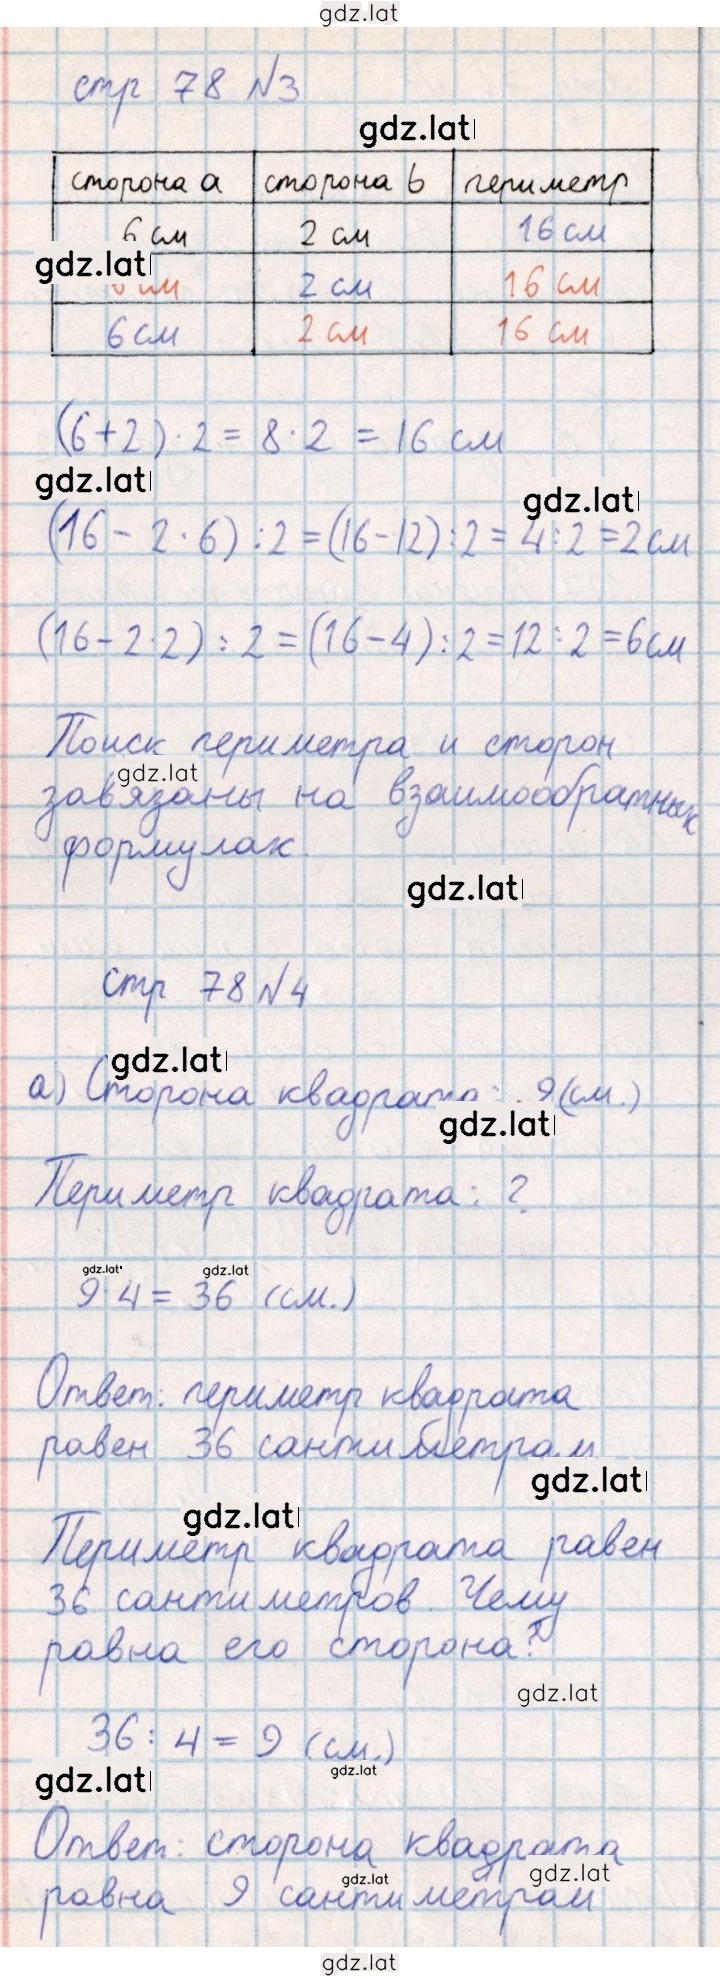 gdz.lat
стр 78 №3
gdz.lat
сторона a сторона b периметр
6 см 2 см 16 см
gdz.lat
6 см 2 см 16 см
6 см 2 см 16 см
(6+2)·2=8·2=16 см
gdz.lat
gdz.lat
(16-2·6):2=(16-12):2=4:2=2 см
(16-2·2):2=(16-4):2=12:2=6 см
Поиск периметра и сторон
gdz.lat
завязаны на взаимообратных
формулах.
gdz.lat
стр 78 №4
gdz.lat
а) Сторона квадрата: 9 (см.)
gdz.lat
Периметр квадрата: ?
gdz.lat gdz.lat
9·4=36 (см.)
Ответ: периметр квадрата
равен 36 сантиметрам
gdz.lat
gdz.lat
Периметр квадрата равен
36 сантиметров. Чему
равна его сторона?
gdz.lat
36:4=9 (см.)
gdz.lat
gdz.lat
Ответ: сторона квадрата
gdz.lat
gdz.lat
равна 9 сантиметрам
gdz.lat